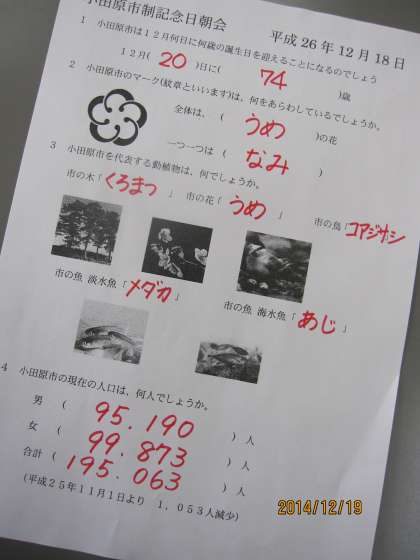 小田原市制記念日朝会　平成26年12月18日
1　小田原市は12月何日に何歳の誕生日を迎えることになるのでしょう
12月（ 20 ）日に（ 74 ）歳
2　小田原市のマーク(紋章といいます)は、何をあらわしているでしょうか。
全体は、（ うめ ）の花
一つ一つは（ なみ ）
3　小田原市を代表する動植物は、何でしょうか。
市の木「くろまつ」　市の花「うめ」　市の鳥「コアジサシ
市の魚 淡水魚「メダカ」　市の魚 海水魚「あじ」
4　小田原市の現在の人口は、何人でしょうか。
男　（ 95.190 ）人
女　（ 99.873 ）人
合計（ 195.063 ）人
（平成25年11月1日より　1，053人減少）
2014/12/19